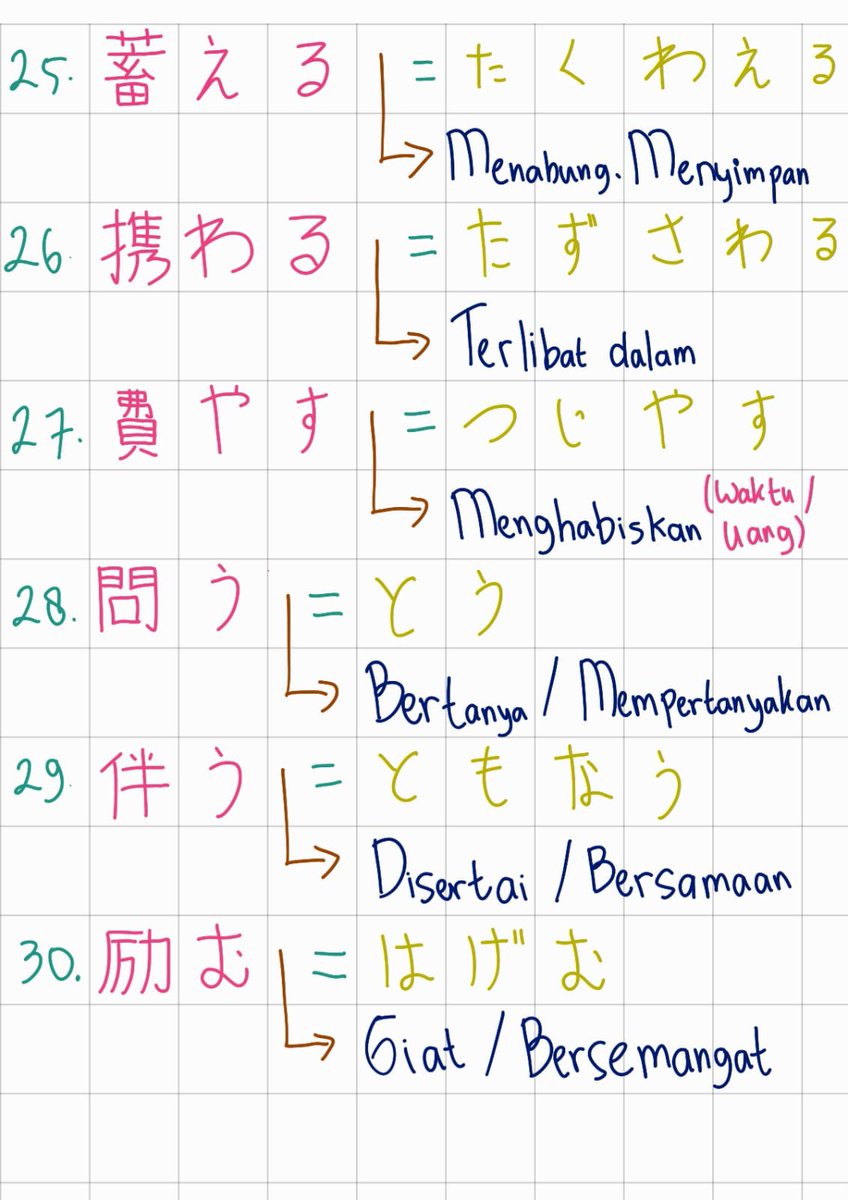 25. 蓄える = たくわえる
Menabung. Menyimpan
26. 携わる = たずさわる
Terlibat dalam
27. 費やす = つじやす
Menghabiskan (Waktu/
Uang)
28. 問う = とう
Bertanya / Mempertanyakan
29. 伴う = ともなう
Disertai / Bersamaan
30. 励む = はげむ
Giat / Bersemangat